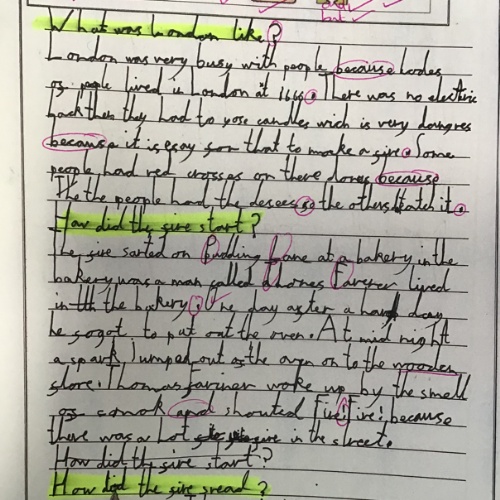 What was London like?
London was very busy with people because lodes
of people lived in London at 1666. There was no electric
back then they had to yose candles wich is very dangres
because it is esay for that to make a fire. Some
people had red crosses on there dores because
The the people had the desees so the others catch it.
How did the fire start?
The fire sarted on Pudding Lane at a bakery in the
bakery was a man called Thomes Faryner lived
in the bakery. One day after a hard day
he fogot to put out the oven. At mid night
a spark Jumped out of the oven on to the wooden
flore. Thomas fariner woke up by the smell
of smok and shouted fire! fire! because
there was a lot fire in the street.
How did the fire start?
How did the fire spread?